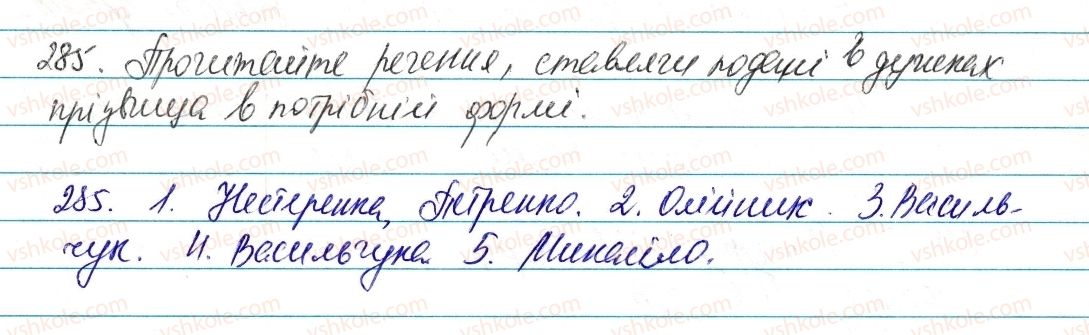 285. Прочитайте речення, ставлячи подані в дужках
прізвища в потрібній формі.
285. 1. Нестеренка, Петренко. 2. Олійник. 3. Василь-
чук. 4. Васильчука. 5. Михайло.